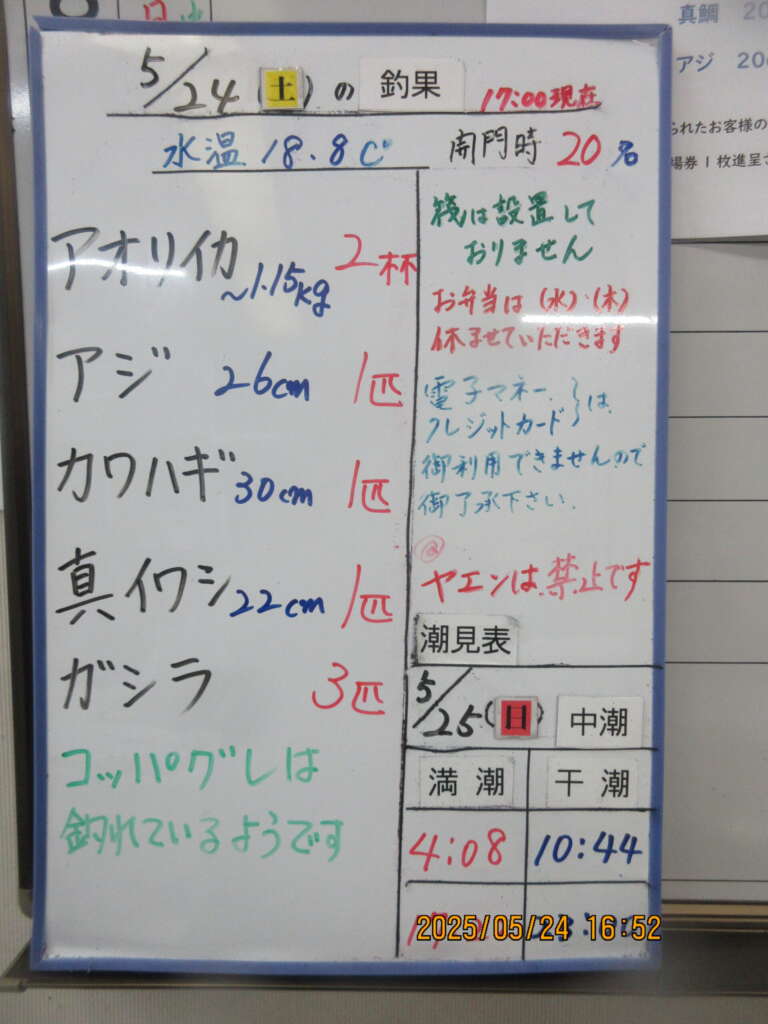 5/24(土)の 釣果 17:00現在
水温 18.8c° 開門時 20名
アオリイカ ~1.15kg 2杯
アジ 26cm 1匹
カワハギ 30cm 1匹
真イワシ 22cm 1匹
ガシラ 3匹
コッパグレは
釣れているようです
筏は設置して
おりません
お弁当は(水)・(木)
休ませていただきます
電子マネー.
クレジットカード は.
御利用できませんので
御了承下さい.
ヤエンは.禁止です
潮見表
5/25(日) 中潮
満潮 干潮
4:08 10:44
2025/05/24 16:52
真鯛 20
アジ 20c
られたお客様の
場券1枚進呈さ